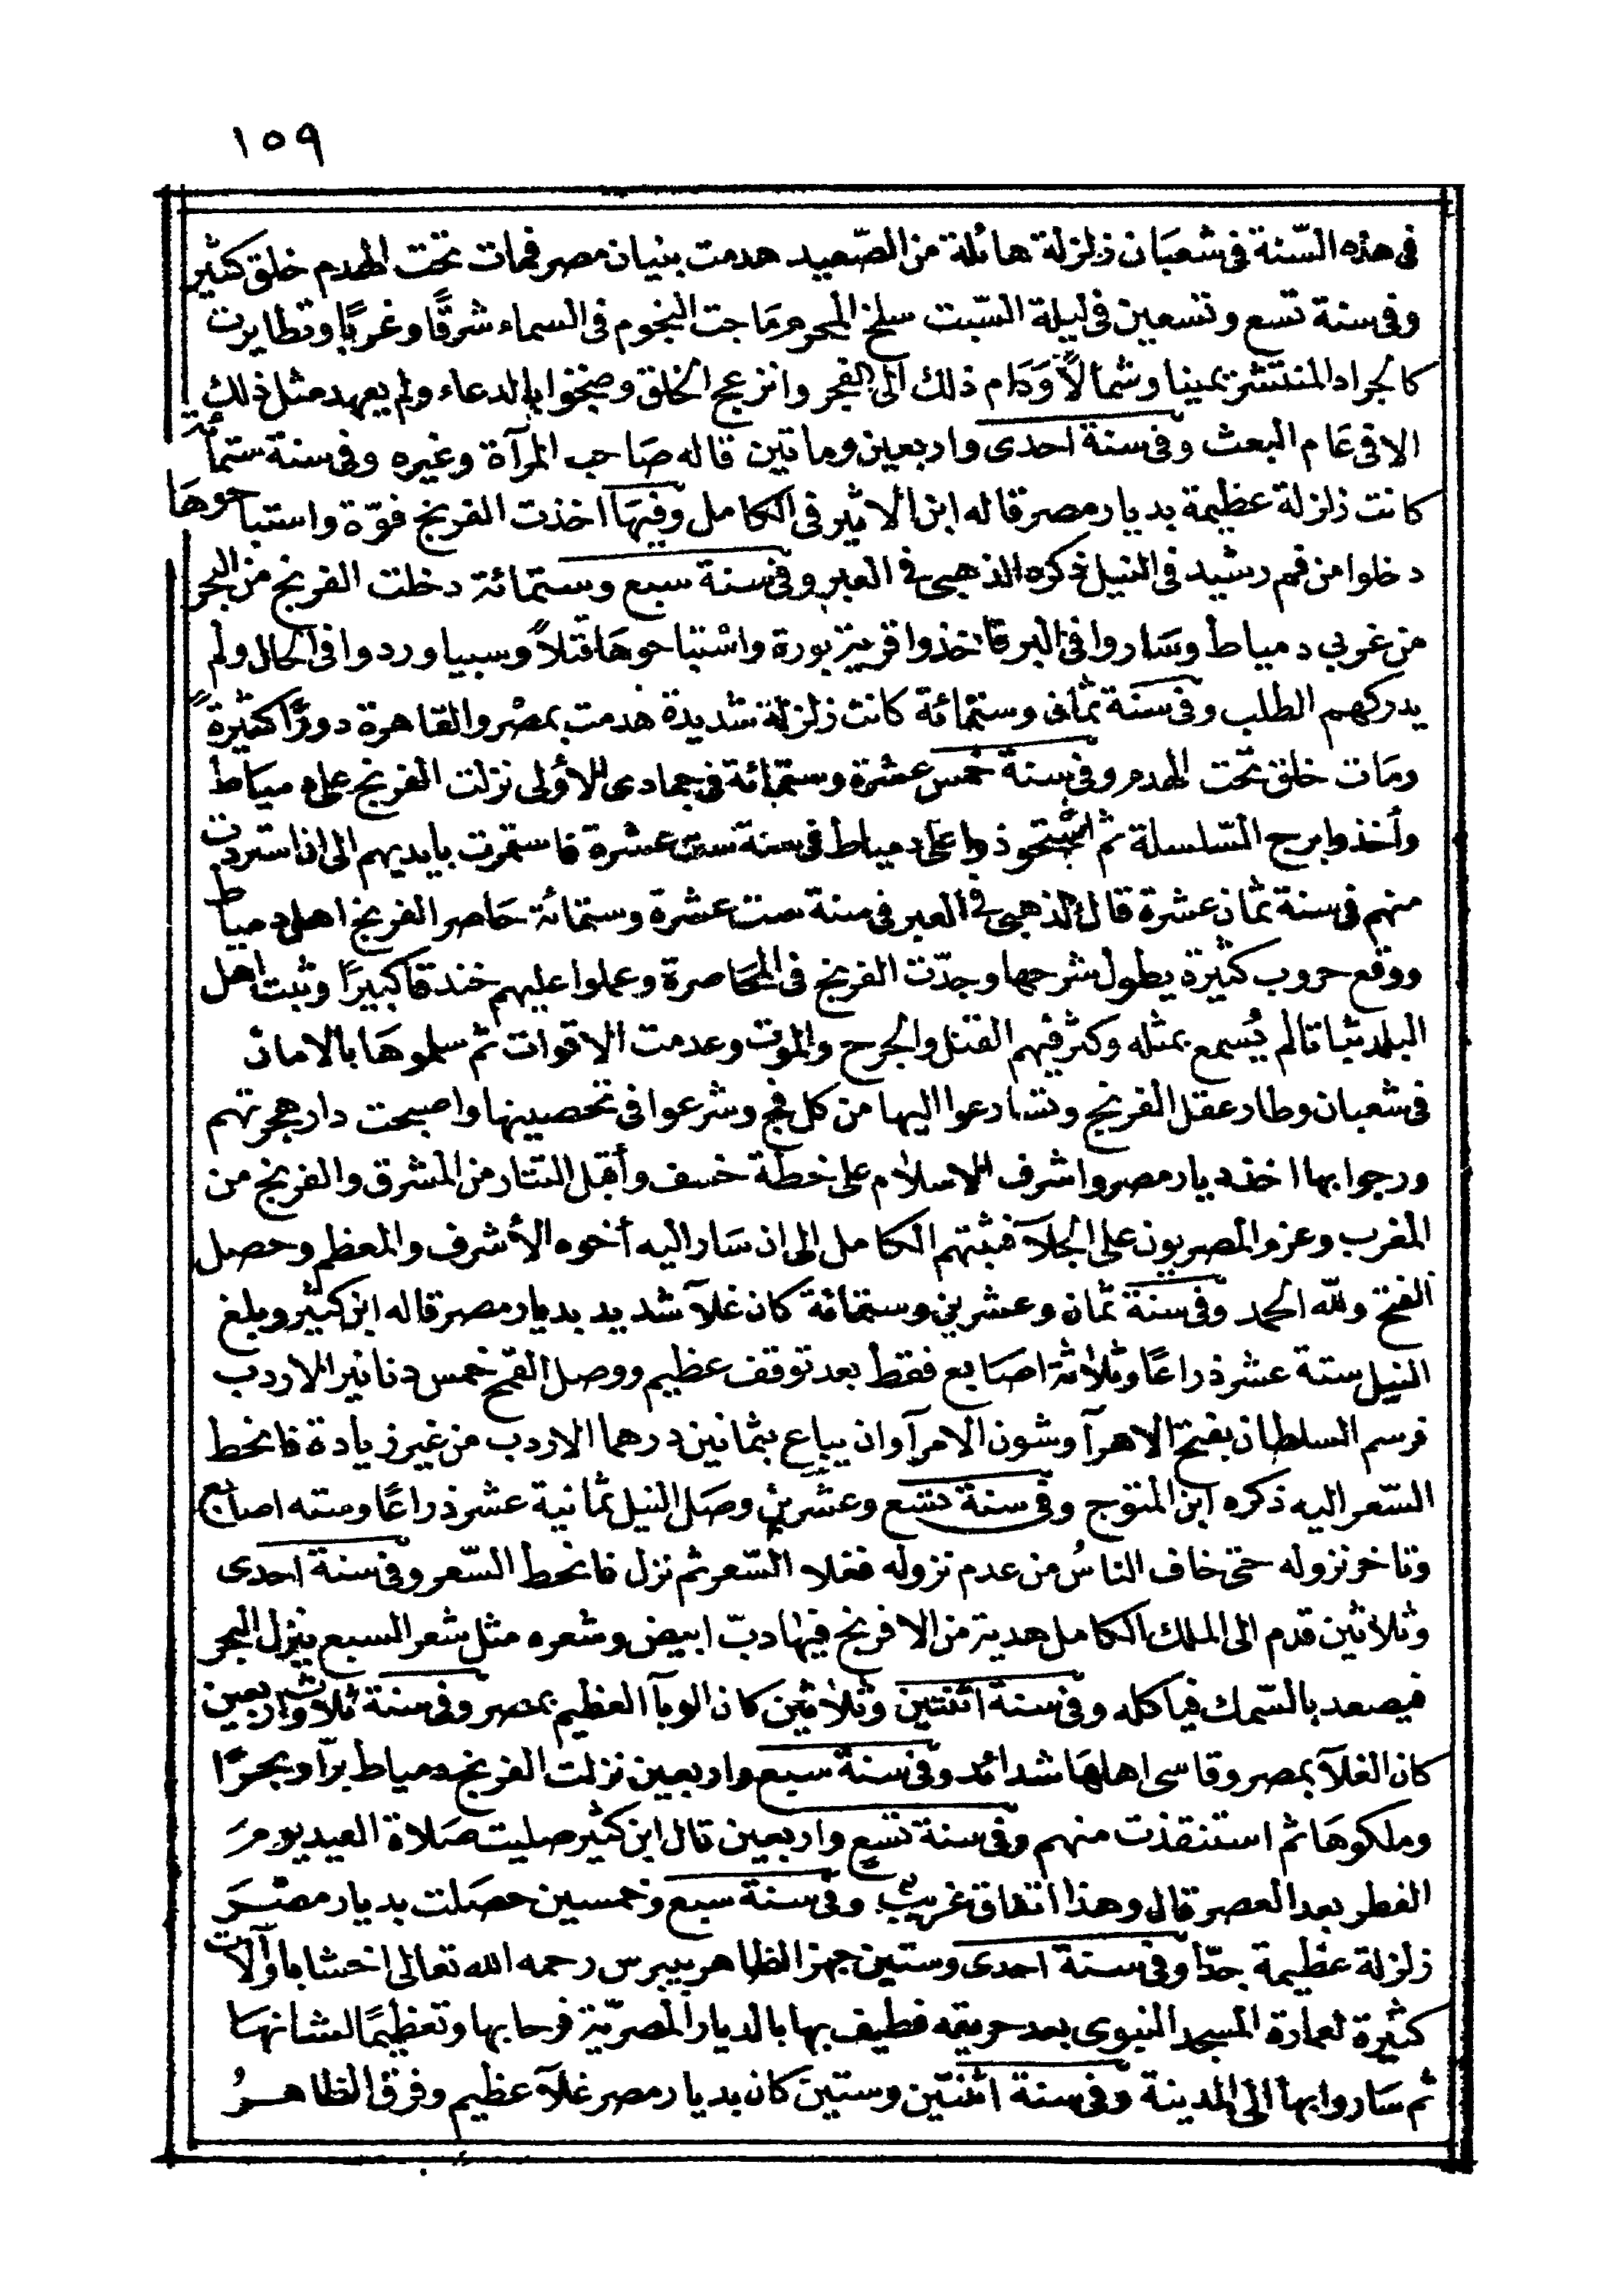 ١٥٩
في هذه السّنة في شعبَان زلزلة هائلة من الصّعيد هدمت بنيان مصر فمات تحت الهدم خلق كثير
وفى سنة تسع وتسعين فى ليلة السّبت سلخ المحرم مَاجت النجوم فى السماء شرقًا وغربًا وتطايرت
كالجراد المنتشر يمينا وشمالاً وَدَام ذلك الى الفجر وانزعج الخلق وضجوا بالدعاء ولم يعهد مثل ذلك
الا فى عَام البعث وفى سنة احدى واربعين وماتين قاله صَاحب المرآة وغيره وفى سنة ستمائة
كانت زلزلة عظيمة بديار مصر قاله ابن الاثير فى الكامل وفيهَا اخذت الفرنج فوّة واستباحوهَا
دخلوا من فم رشيد فى النيل ذكره الذهبى فى العبر وفى سنة سبع وستمائة دخلت الفرنج من البحر
من غربي دمياط وسَاروا فى البر فاخذوا قرية بورة واستباحوهَا قتلاً وسبيا وردوا فى الحال ولم
يدركهم الطلب وفى سَنة ثمانى وستمائة كانت زلزلة شديدة هدمت بمصر والقاهرة دورًا كثيرةً
ومَات خلق تحت الهدم وفى سنة خمس عشرة وستمائة فى جمادى الأولى نزلت الفرنج على دميَاط
وأخذوا برج السّلسلة ثم استحوذوا على دمياط فى سنة ست عشرة فاستمرت بأيديهم الى ان استردت
منهم فى سنة ثمان عشرة قال الذهبى فى العبر فى سنة ست عشرة وستمائة حَاصر الفرنج اهل دمياط
ووقع حروب كثيرة يطول شرحها وجدّت الفرنج فى المحَاصرة وعملوا عليهم خندقا كبيرًا وثبت اهل
البلد ثباتا لم يُسمع بمثله وكثر فيهم القتل والجرح والموت وعدمت الاقوات ثم سلموهَا بالامان
فى شعبان وطار عقل الفرنج وتسارعوا اليها من كل فج وشرعوا فى تحصينها واصبحت دار هجرتهم
ورجوا بها اخذ ديار مصر واشرف الاسلام على خطة خسف وأقبل التتار من المشرق والفرنج من
المغرب وعزم المصريون على الجلآ فثبتهم الكامل الى ان سَار اليه أخوه الأشرف والمعظم وحصل
الفتح ولله الحمد وفى سنة ثمان وعشرين وستمائة كان غلآ شديد بديار مصر قاله ابن كثير وبلغ
النيل ستة عشر ذراعًا وثلاثة اصابع فقط بعد توقف عظيم ووصل القمح خمس دنانير الاردب
فرسم السلطان بفتح الاهرآ وشون الامرآ وان يباع بثمانين درهما الاردب من غير زيادة فانحط
السّعر اليه ذكره ابن المتوج وفى سنة تسع وعشرين وصَل النيل ثمانية عشر ذراعًا وسته اصابع
وتاخر نزوله حتى خاف الناسُ من عدم نزوله فغلا السّعر ثم نزل فانحط السّعر وفى سنة احدى
وثلاثين قدم الى الملك الكامل هدية من الافرنج فيها دبّ ابيض وشعره مثل شعر السبع ينزل البحر
فيصعد بالسّمك فياكله وفى سنة اثنتين وثلاثين كان الوبآ العظيم بمصر وفى سنة ثلاث واربعين
كان الغلآ بمصر وقاسى اهلهَا شدائد وفى سنة سبع واربعين نزلت الفرنج دمياط برّا وبحرًا
وملكوهَا ثم استنقذت منهم وفى سنة تسع واربعين قال ابن كثير صليت صَلاة العيد يومَ
الفطر بعد العصر قال وهذا اتفاق غريب وفى سنة سبع وخمسين حصَلت بديار مصرَ
زلزلة عظيمة جدّا وفى سنة احدى وستين جهز الظاهر بيبرس رحمه الله تعالى اخشابا وآلات
كثيرة لعمارة المسجد النبوى بعد حريقه فطيف بها بالديار المصريّة فرحا بها وتعظيمًا لشانهَا
ثم سَاروا بها الى المدينة وفى سنة اثنتين وستين كان بديار مصر غلآ عظيم وفرق الظاهرُ